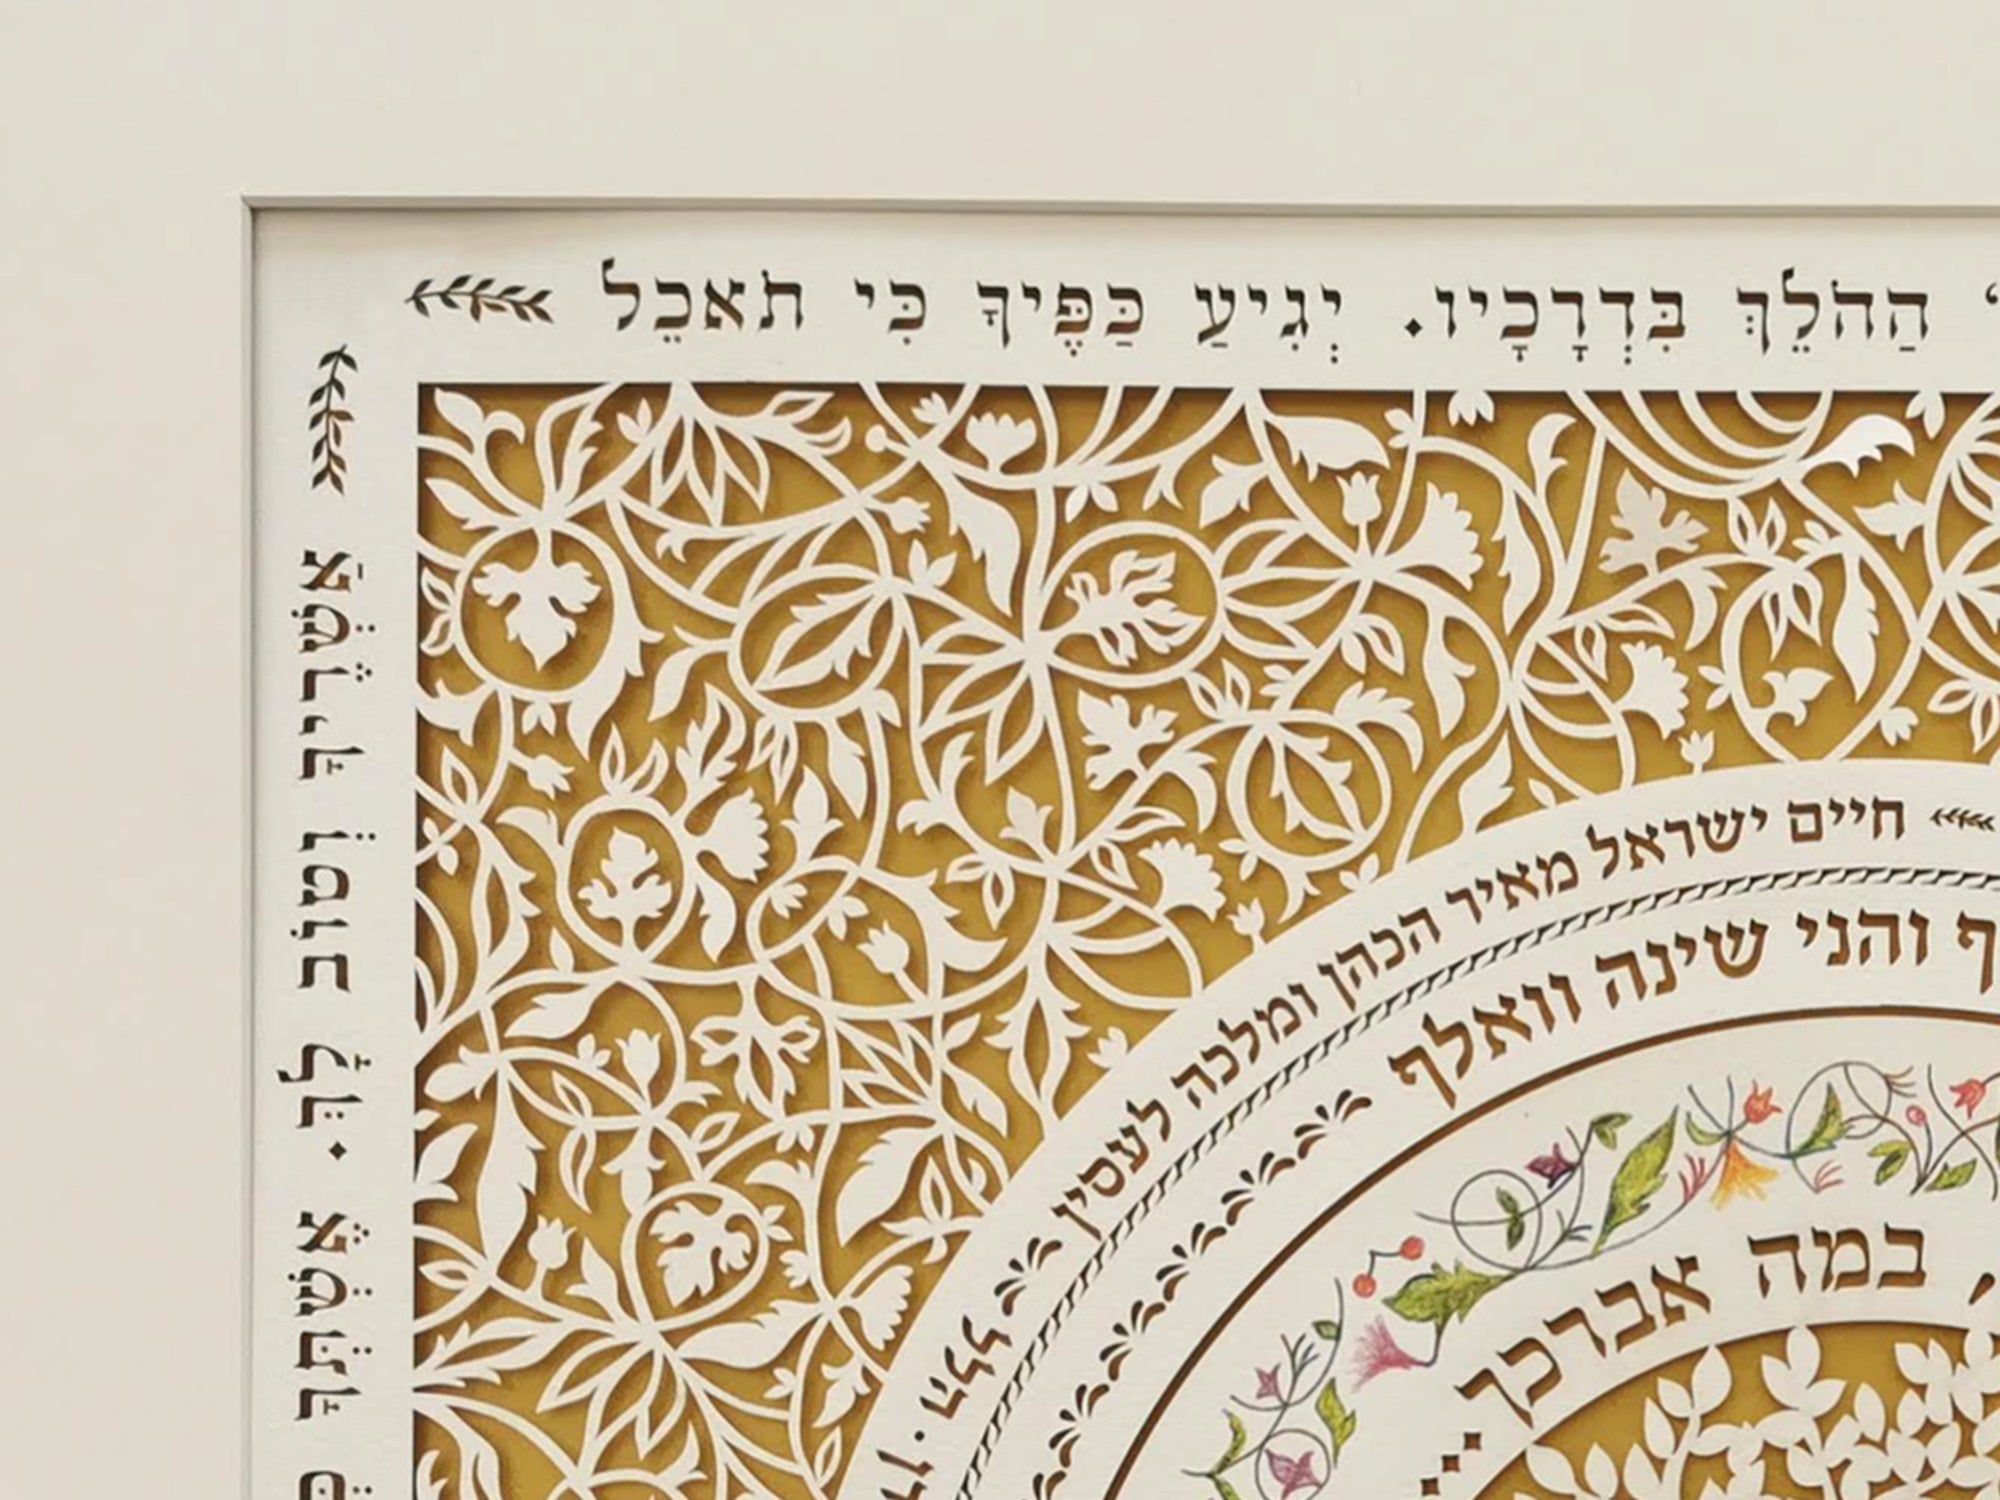 הַהֹלֵךְ בִּדְרָכָיו. יְגִיעַ כַּפֶּיךָ כִּי תֹאכֵל
אַשְׁרֶיךָ וְטוֹב לָךְ. אֶשְׁתְּךָ
חיים ישראל מאיר הכהן ומלכה לעסין
הלל
והני שינה וואלף
במה אברכך